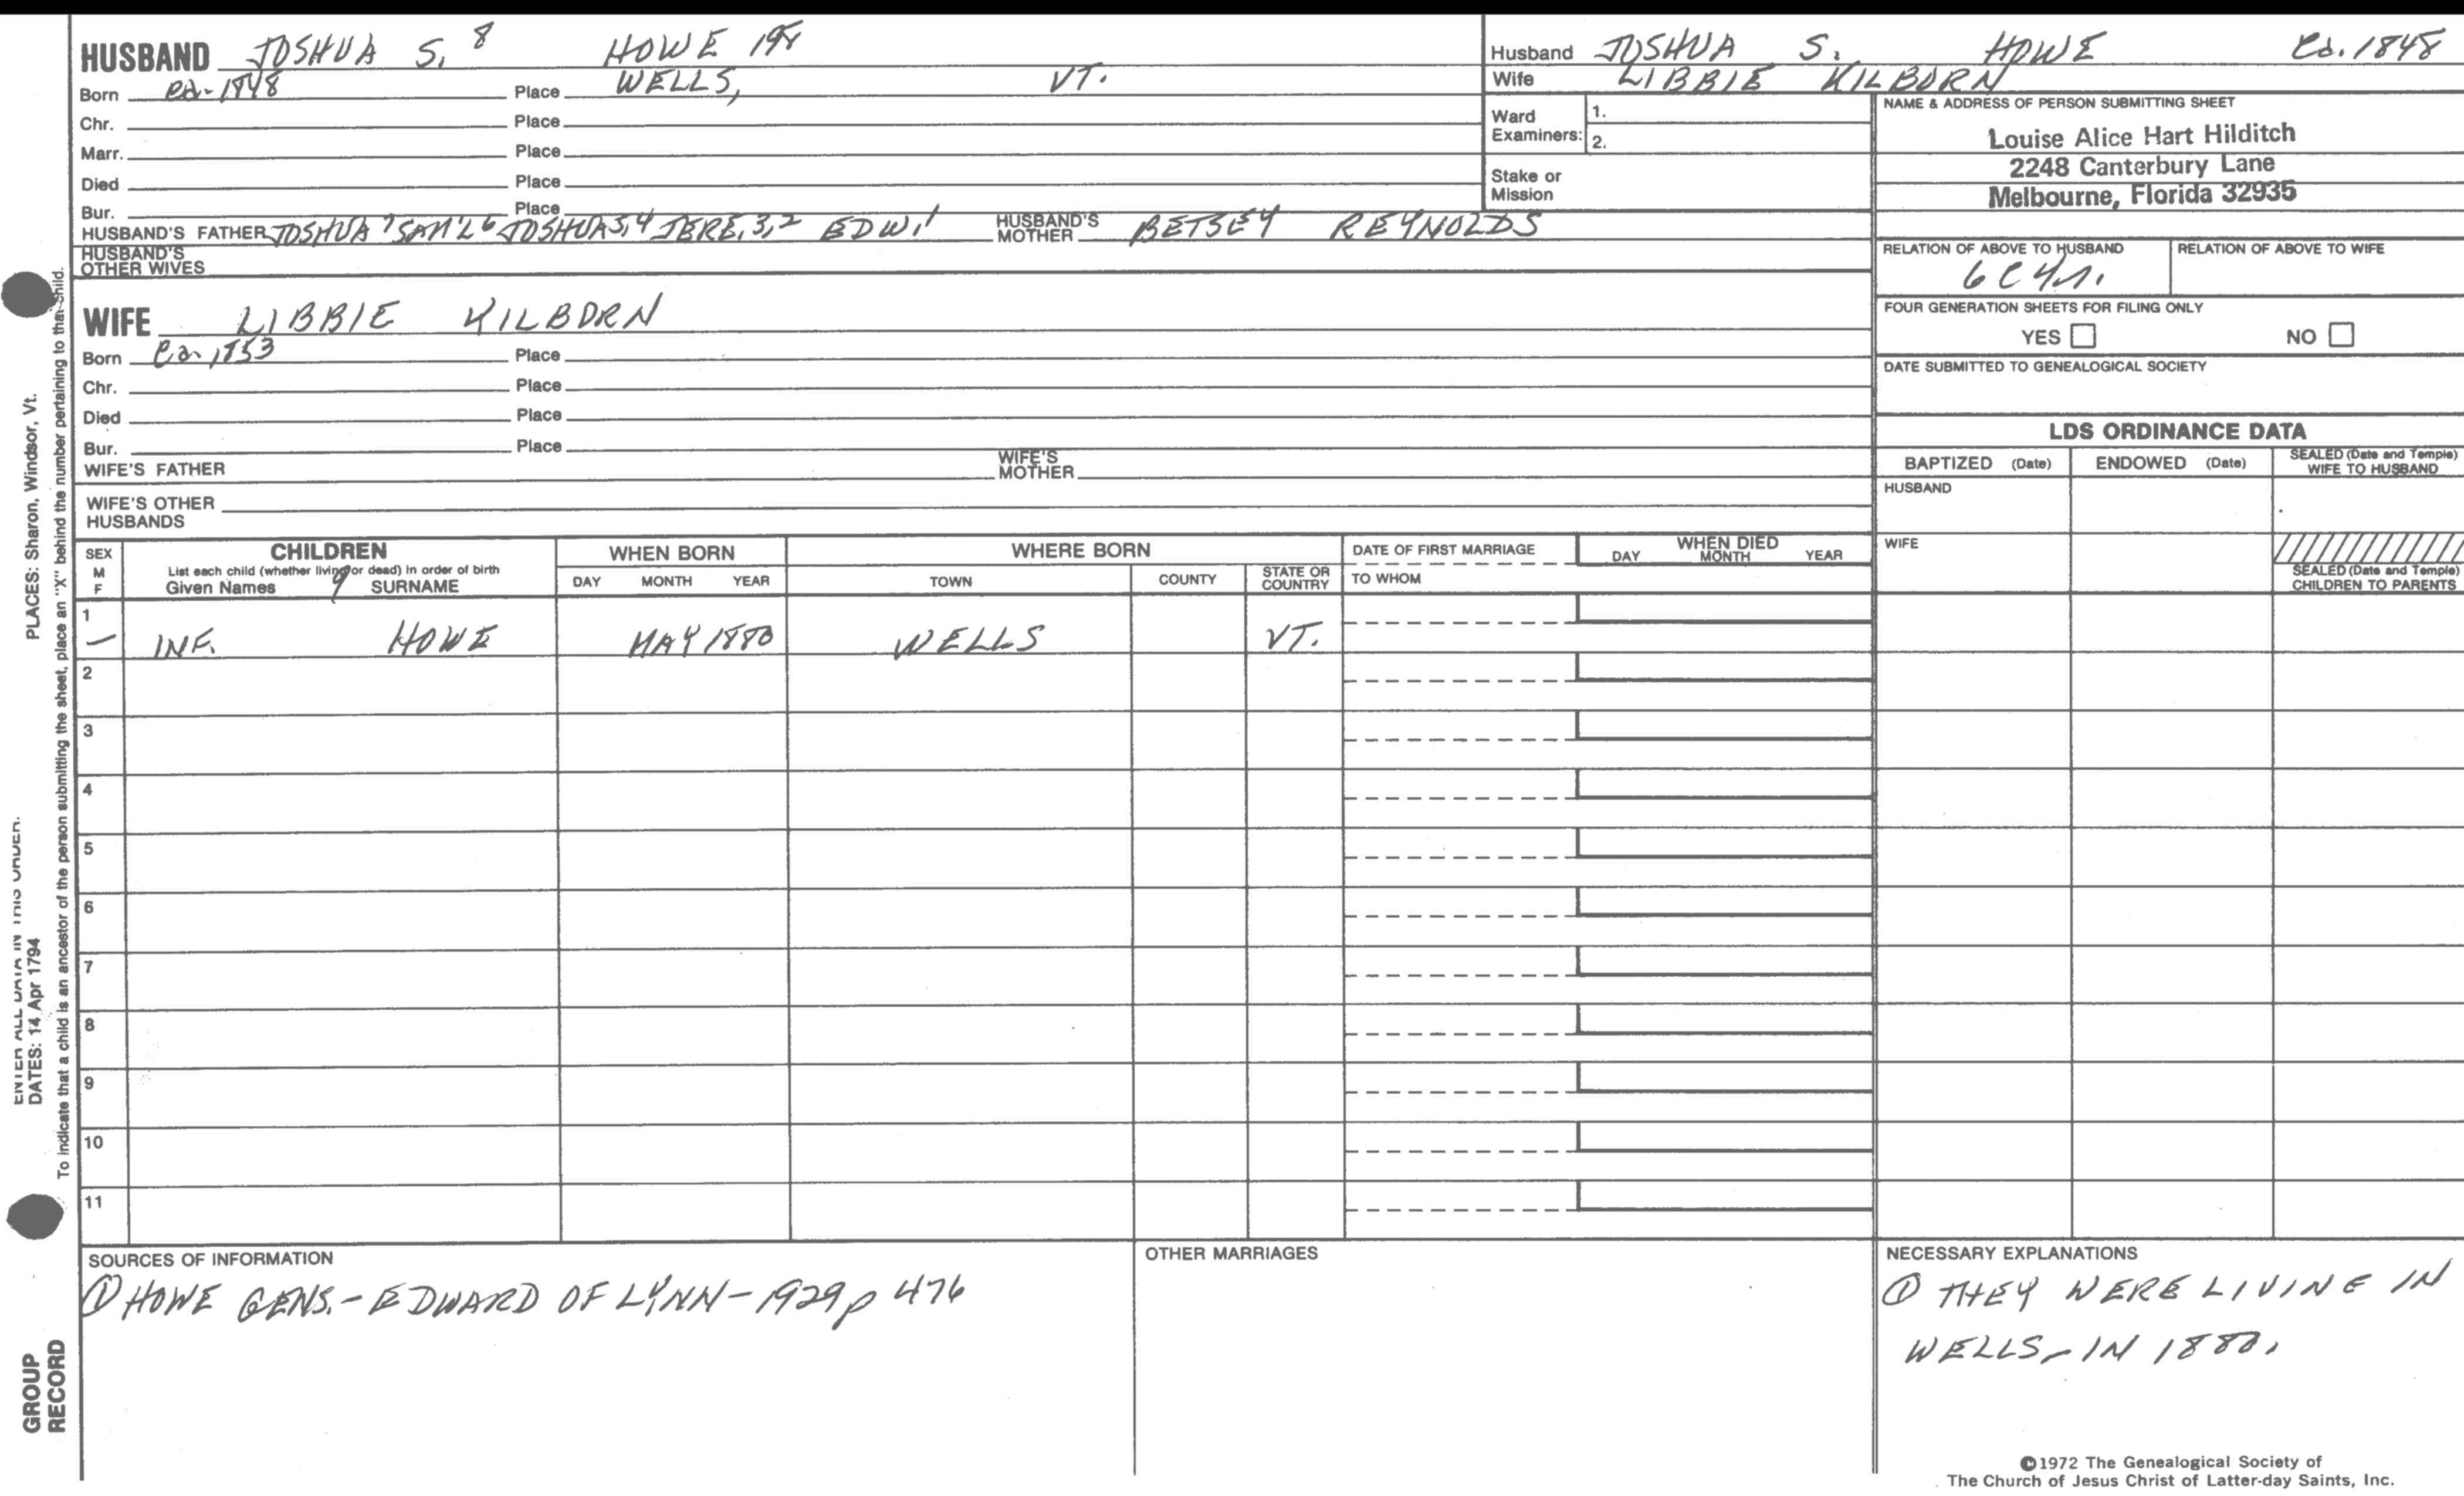 HUSBAND JOSHUA S. 8 HOWE
Born ca. 1848 Place WELLS, VT.
Chr. Place
Marr. Place
Died Place
Bur. Place
HUSBAND'S FATHER JOSHUA 7 SAM'L 6 JOSHUA 5,4 JERE. 3,2 EDW. 1 HUSBAND'S MOTHER BETSEY REYNOLDS
HUSBAND'S OTHER WIVES
WIFE LIBBIE KILBORN
Born ca. 1853 Place
Chr. Place
Died Place
Bur. Place
WIFE'S FATHER WIFE'S MOTHER
WIFE'S OTHER HUSBANDS
Husband JOSHUA S. HOWE ca. 1848
Wife LIBBIE KILBORN
Ward Examiners: 1.
2.
Stake or Mission
NAME & ADDRESS OF PERSON SUBMITTING SHEET
Louise Alice Hart Hilditch
2248 Canterbury Lane
Melbourne, Florida 32935
RELATION OF ABOVE TO HUSBAND RELATION OF ABOVE TO WIFE
6C4r.
FOUR GENERATION SHEETS FOR FILING ONLY
YES NO
DATE SUBMITTED TO GENEALOGICAL SOCIETY
LDS ORDINANCE DATA
BAPTIZED (Date) ENDOWED (Date) SEALED (Date and Temple) WIFE TO HUSBAND
HUSBAND
WIFE
SEALED (Date and Temple) CHILDREN TO PARENTS
SEX M F CHILDREN WHEN BORN WHERE BORN DATE OF FIRST MARRIAGE WHEN DIED
List each child (whether living or dead) in order of birth
Given Names 9 SURNAME DAY MONTH YEAR TOWN COUNTY STATE OR COUNTRY TO WHOM DAY MONTH YEAR
1
— INF. HOWE MAY 1880 WELLS VT.
2
3
4
5
6
7
8
9
10
11
SOURCES OF INFORMATION
① HOWE GENS. - EDWARD OF LYNN - 1929 p 476
OTHER MARRIAGES
NECESSARY EXPLANATIONS
① THEY WERE LIVING IN
WELLS - IN 1880.
©1972 The Genealogical Society of
The Church of Jesus Christ of Latter-day Saints, Inc.
PLACES: Sharon, Windsor, Vt.
ENTER ALL DATA IN THIS ORDER.
DATES: 14 Apr 1794
To indicate that a child is an ancestor of the person submitting the sheet, place an "X" behind the number pertaining to that child.
GROUP
RECORD